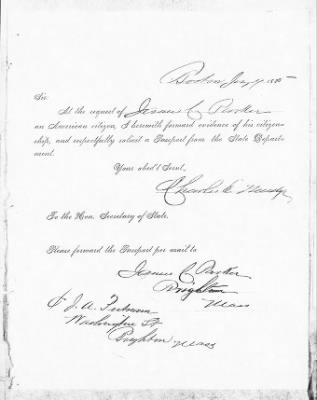 Boston Jany 1885
Sir:
At the request of Jennie C Parker
an American citizen, I herewith forward evidence of his citizen-
ship, and respectfully solicit a Passport from the State Depart-
ment.
Your obed't Servt,
Charles E
To the Hon. Secretary of State.
Please forward the Passport per mail to
Jennie C Parker
Brighton
Mass
J. A.
Washington St
Brighton Mass